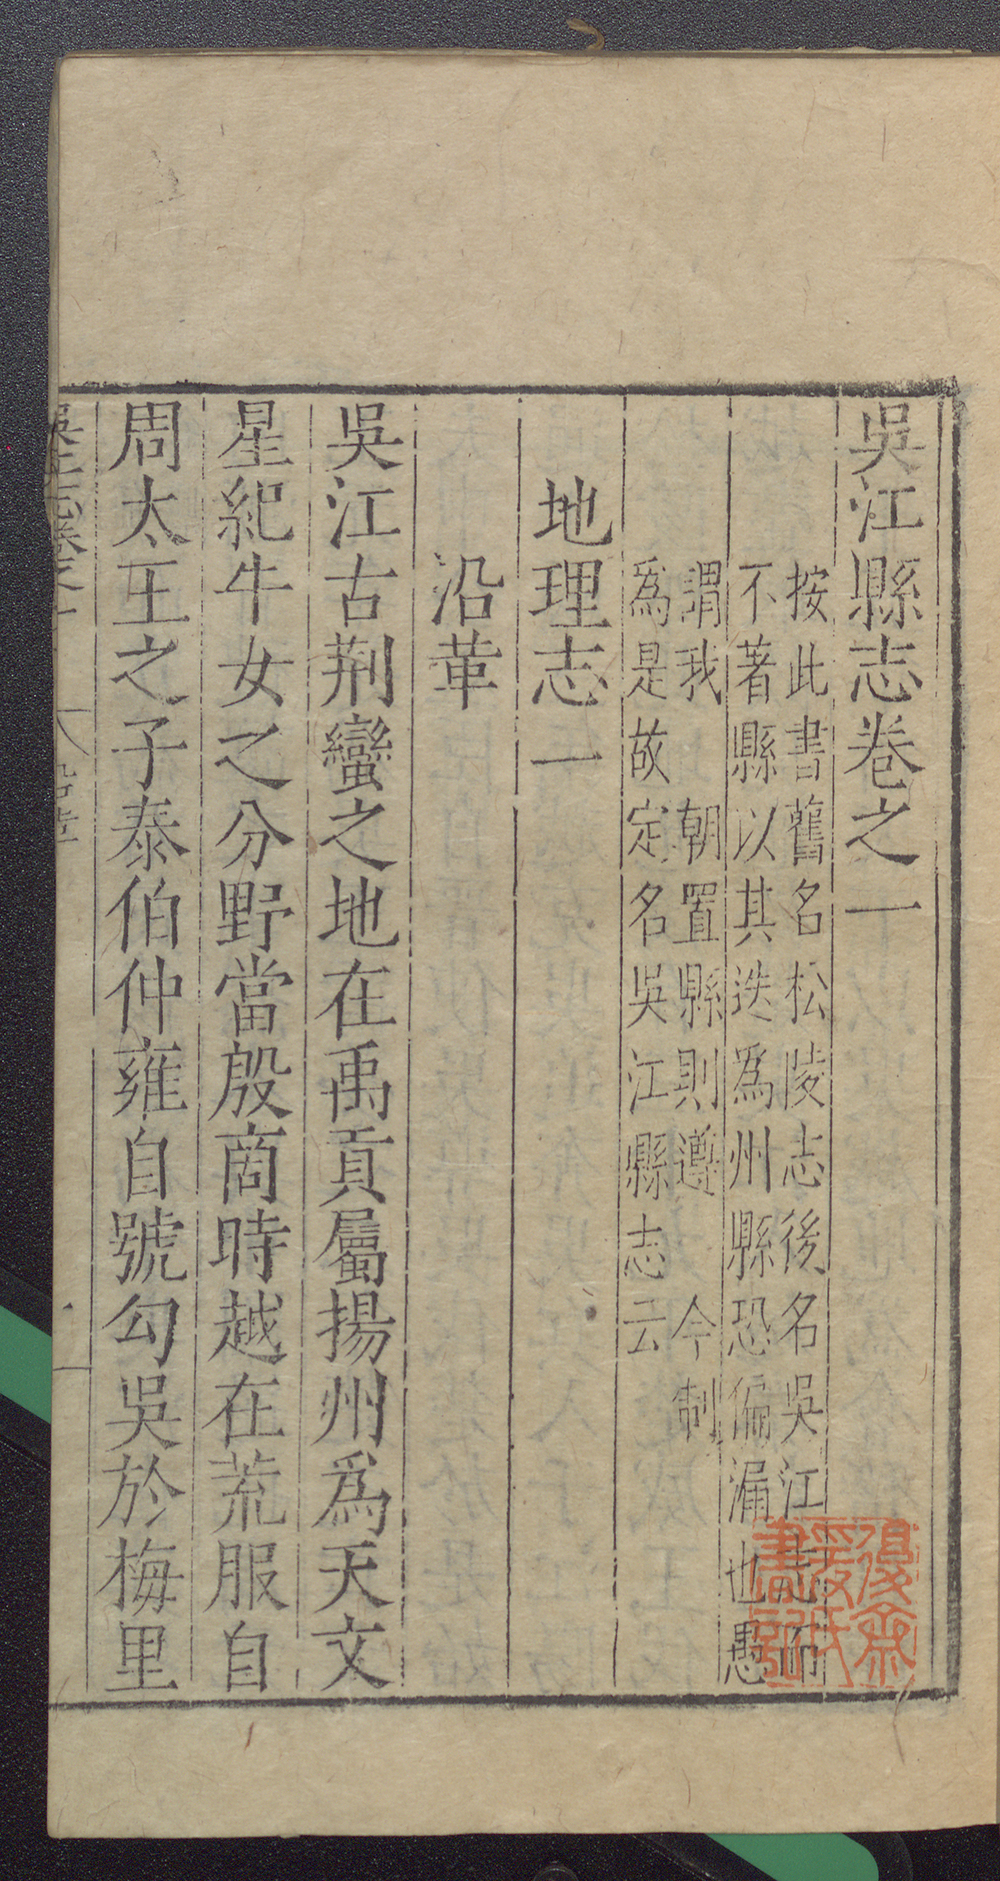 吳江縣志卷之一
按此書舊名松陵志後名吳江志而
不著縣以其迭爲州縣恐偏漏也愚
謂我　朝置縣則遵　今制
爲是故定名吳江縣志云
地理志一
沿革
吳江古荆蠻之地在禹貢屬揚州爲天文
星紀牛女之分野當殷商時越在荒服自
周太王之子泰伯仲雍自號勾吳於梅里